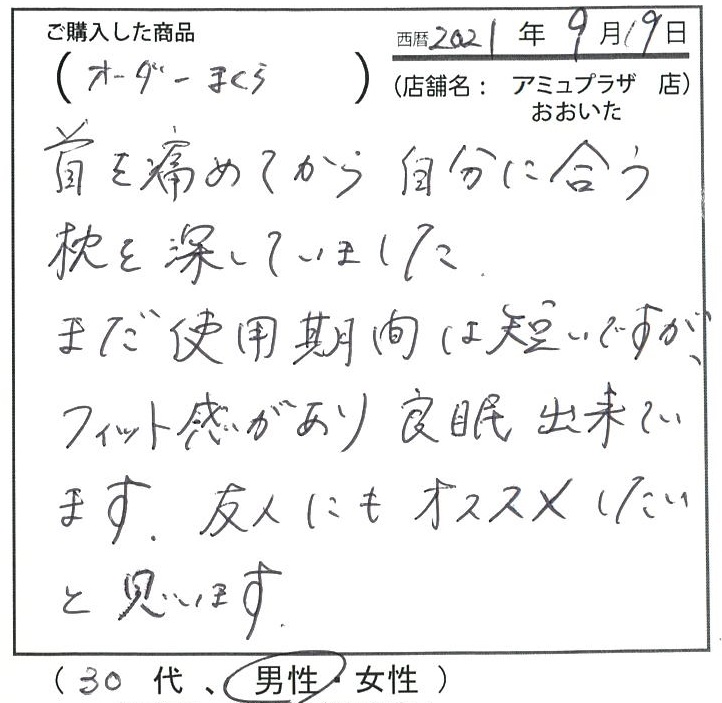 ご購入した商品
西暦2021年9月19日
(オーダーまくら)
(店舗名： アミュプラザ 店)
おおいた
首を痛めてから自分に合う
枕を探していました.
まだ使用期間は短いですが、
フィット感があり良眠出来てい
ます. 友人にもオススメしたい
と思います.
(30代、男性・女性)